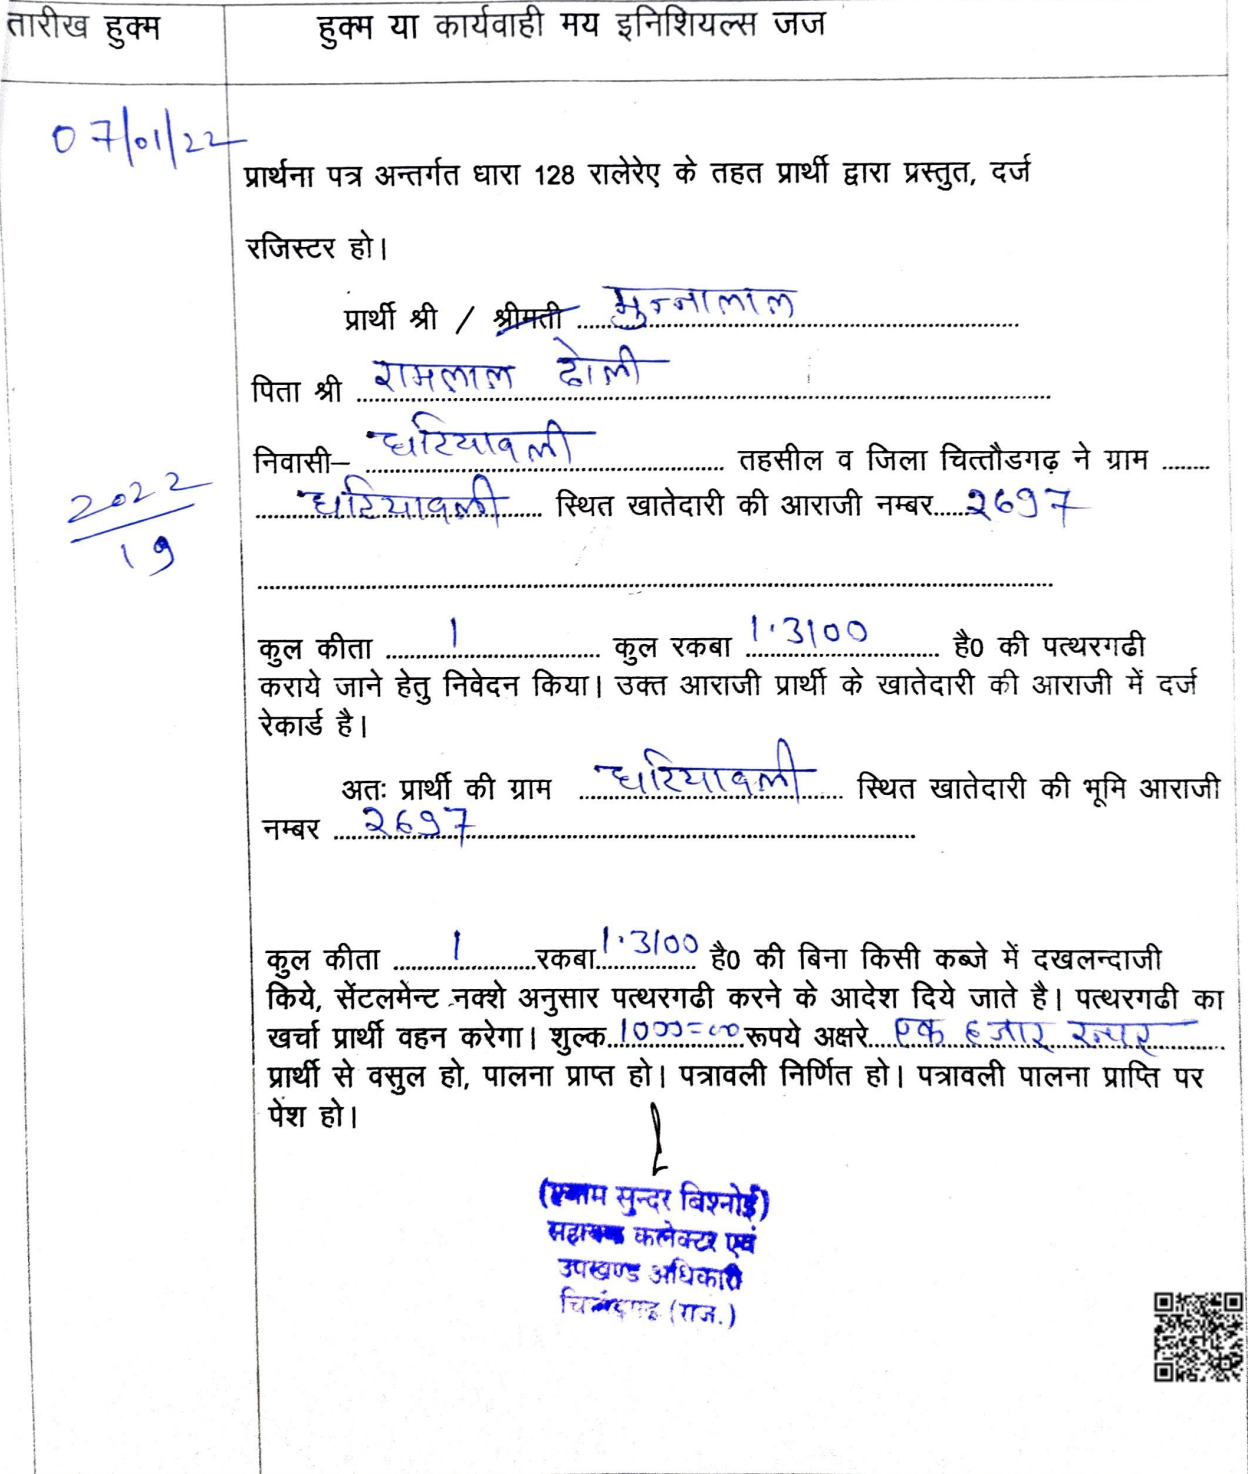 तारीख हुक्म
हुक्म या कार्यवाही मय इनिशियल्स जज
07/01/22
प्रार्थना पत्र अन्तर्गत धारा 128 रालेरेए के तहत प्रार्थी द्वारा प्रस्तुत, दर्ज
रजिस्टर हो।
प्रार्थी श्री / श्रीमती मुन्नालाल
पिता श्री रामलाल ढोली
निवासी– घटियावली तहसील व जिला चित्तौडगढ़ ने ग्राम
2022
19
घटियावली स्थित खातेदारी की आराजी नम्बर 2697
कुल कीता 1 कुल रकबा 1.3100 है0 की पत्थरगढी
कराये जाने हेतु निवेदन किया। उक्त आराजी प्रार्थी के खातेदारी की आराजी में दर्ज
रेकार्ड है।
अतः प्रार्थी की ग्राम घटियावली स्थित खातेदारी की भूमि आराजी
नम्बर 2697
कुल कीता 1 रकबा 1.3100 है0 की बिना किसी कब्जे में दखलन्दाजी
किये, सेंटलमेन्ट नक्शे अनुसार पत्थरगढी करने के आदेश दिये जाते है। पत्थरगढी का
खर्चा प्रार्थी वहन करेगा। शुल्क 1000=00 रूपये अक्षरे एक हजार रूपए
प्रार्थी से वसुल हो, पालना प्राप्त हो। पत्रावली निर्णित हो। पत्रावली पालना प्राप्ति पर
पेश हो।
(श्याम सुन्दर बिश्नोई)
सहायक कलेक्टर एवं
उपखण्ड अधिकारी
चित्तौड़गढ़ (राज.)